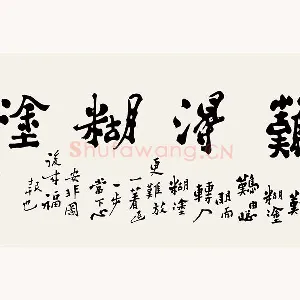 難得糊塗
難
糊塗
難由聰
明而
轉入
糊塗
更難放
一著退
一步
當下心
安非圖
後來福
報也
Shufawang.CN